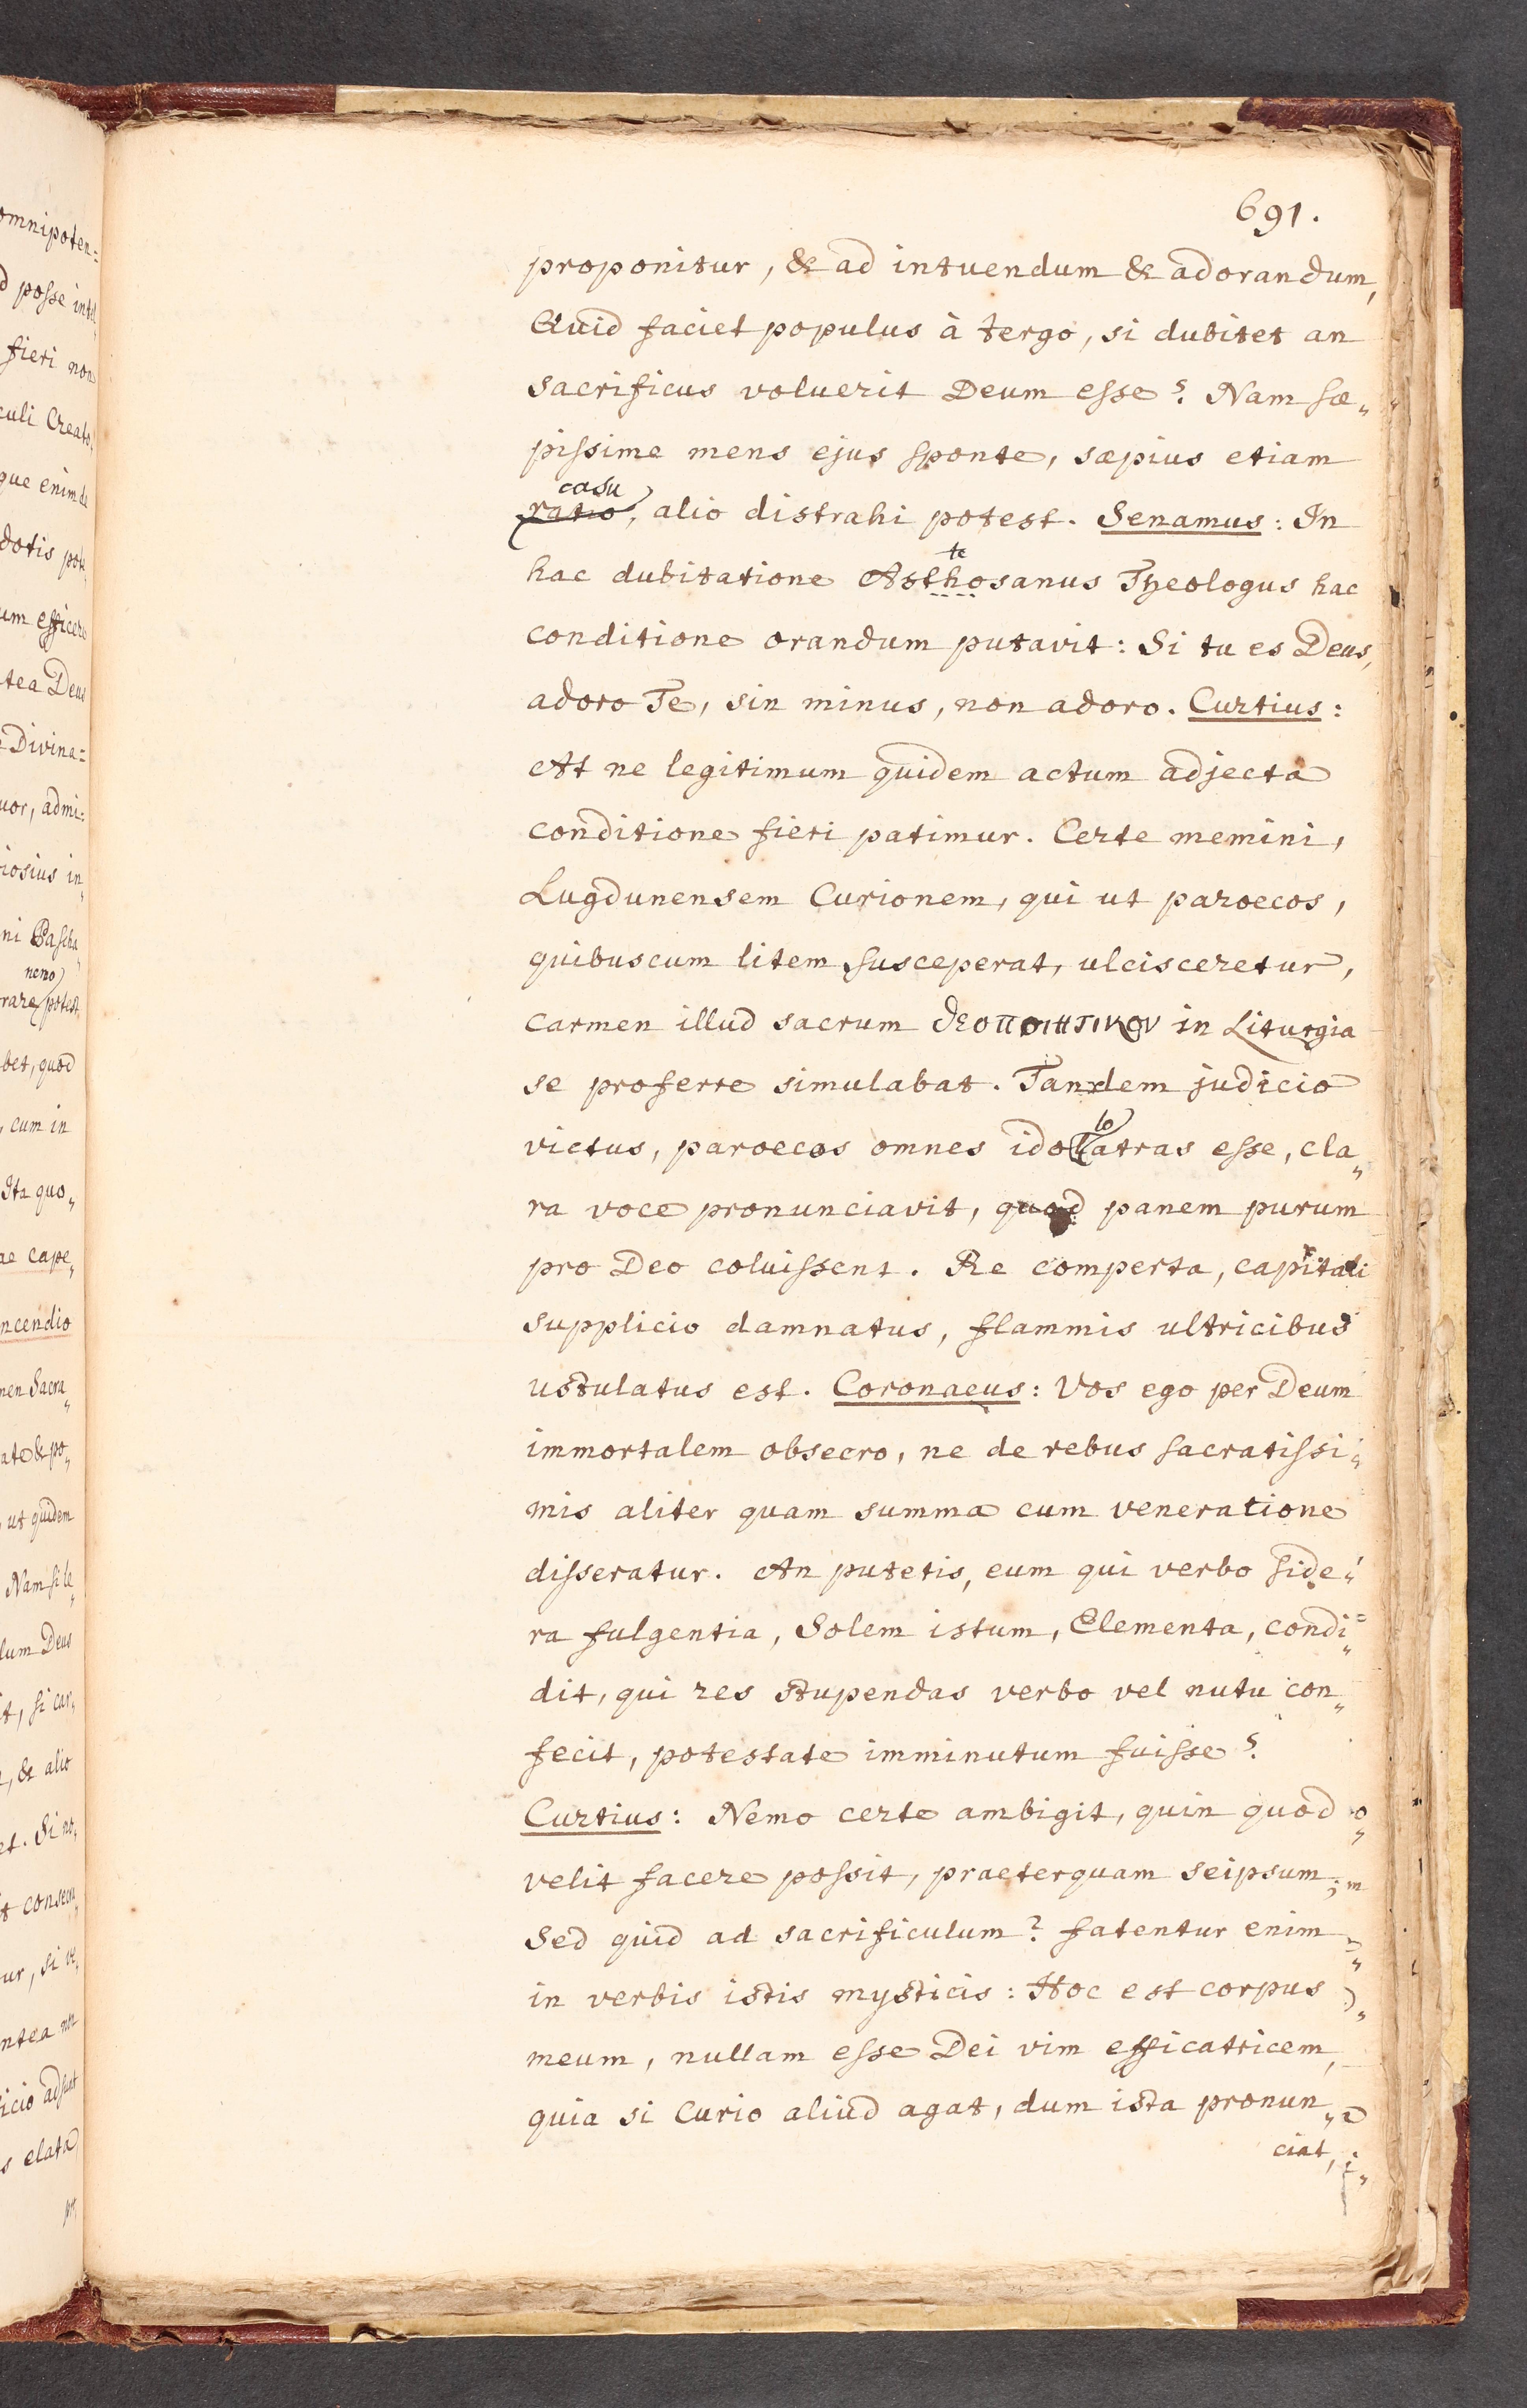 691.
proponitur, & ad intuendum & adorandum,
Quid faciet populus à tergo, si dubitet an
sacrificus voluerit Deum esse? Nam sæ„
pissime mens ejus sponte, sæpius etiam
casu
ratio, alio distrahi potest. Senamus: In
te
hac dubitatione Asthosanus Theologus hac
conditione orandum putavit: Si tu es Deus,
adoro Te, sin minus, non adoro. Curtius:
At ne legitimum quidem actum adjecta
conditione fieri patimur. Certe memini,
Lugdunensem Curionem, qui ut paroecos,
quibuscum litem susceperat, ulcisceretur,
carmen illud sacrum θεοποιητικον in Liturgia
se proferre simulabat. Tandem judicio
lo
victus, paroecos omnes idolatras esse, cla„
ra voce pronunciavit, quod panem purum
pro Deo coluissent. Re comperta, capitali
supplicio damnatus, flammis ultricibus
ustulatus est. Coronaeus: Vos ego per Deum
immortalem obsecro, ne de rebus sacratissi„
mis aliter quam summa cum veneratione
disseratur. An putetis, eum qui verbo side„
ra fulgentia, Solem istum, Elementa, condi„
dit, qui res stupendas verbo vel nutu con„
fecit, potestate imminutum fuisse?
Curtius: Nemo certe ambigit, quin quod
velit facere possit, praeterquam seipsum;
Sed quid ad sacrificulum? fatentur enim
in verbis istis mysticis: Hoc est corpus
meum, nullam esse Dei vim efficatricem,
quia si Curio aliud agat, dum ista pronun„
ciat,
omnipoten=
posse
fieri non
que enim de
dotis
um efficere
tea Deus
Divina=
uor, admi=
iosius in„
ni Pascha
nemo
rare potest
bet, quod
, cum in
Ita quo„
ae cape„
ncendio
men Sacra„
ate & po„
, ut quidem
Nam si le„
lum Deus
t, si car„
, & alio
et. Si no„
ur, si ve„
ntea non
icio adsunt
s elata